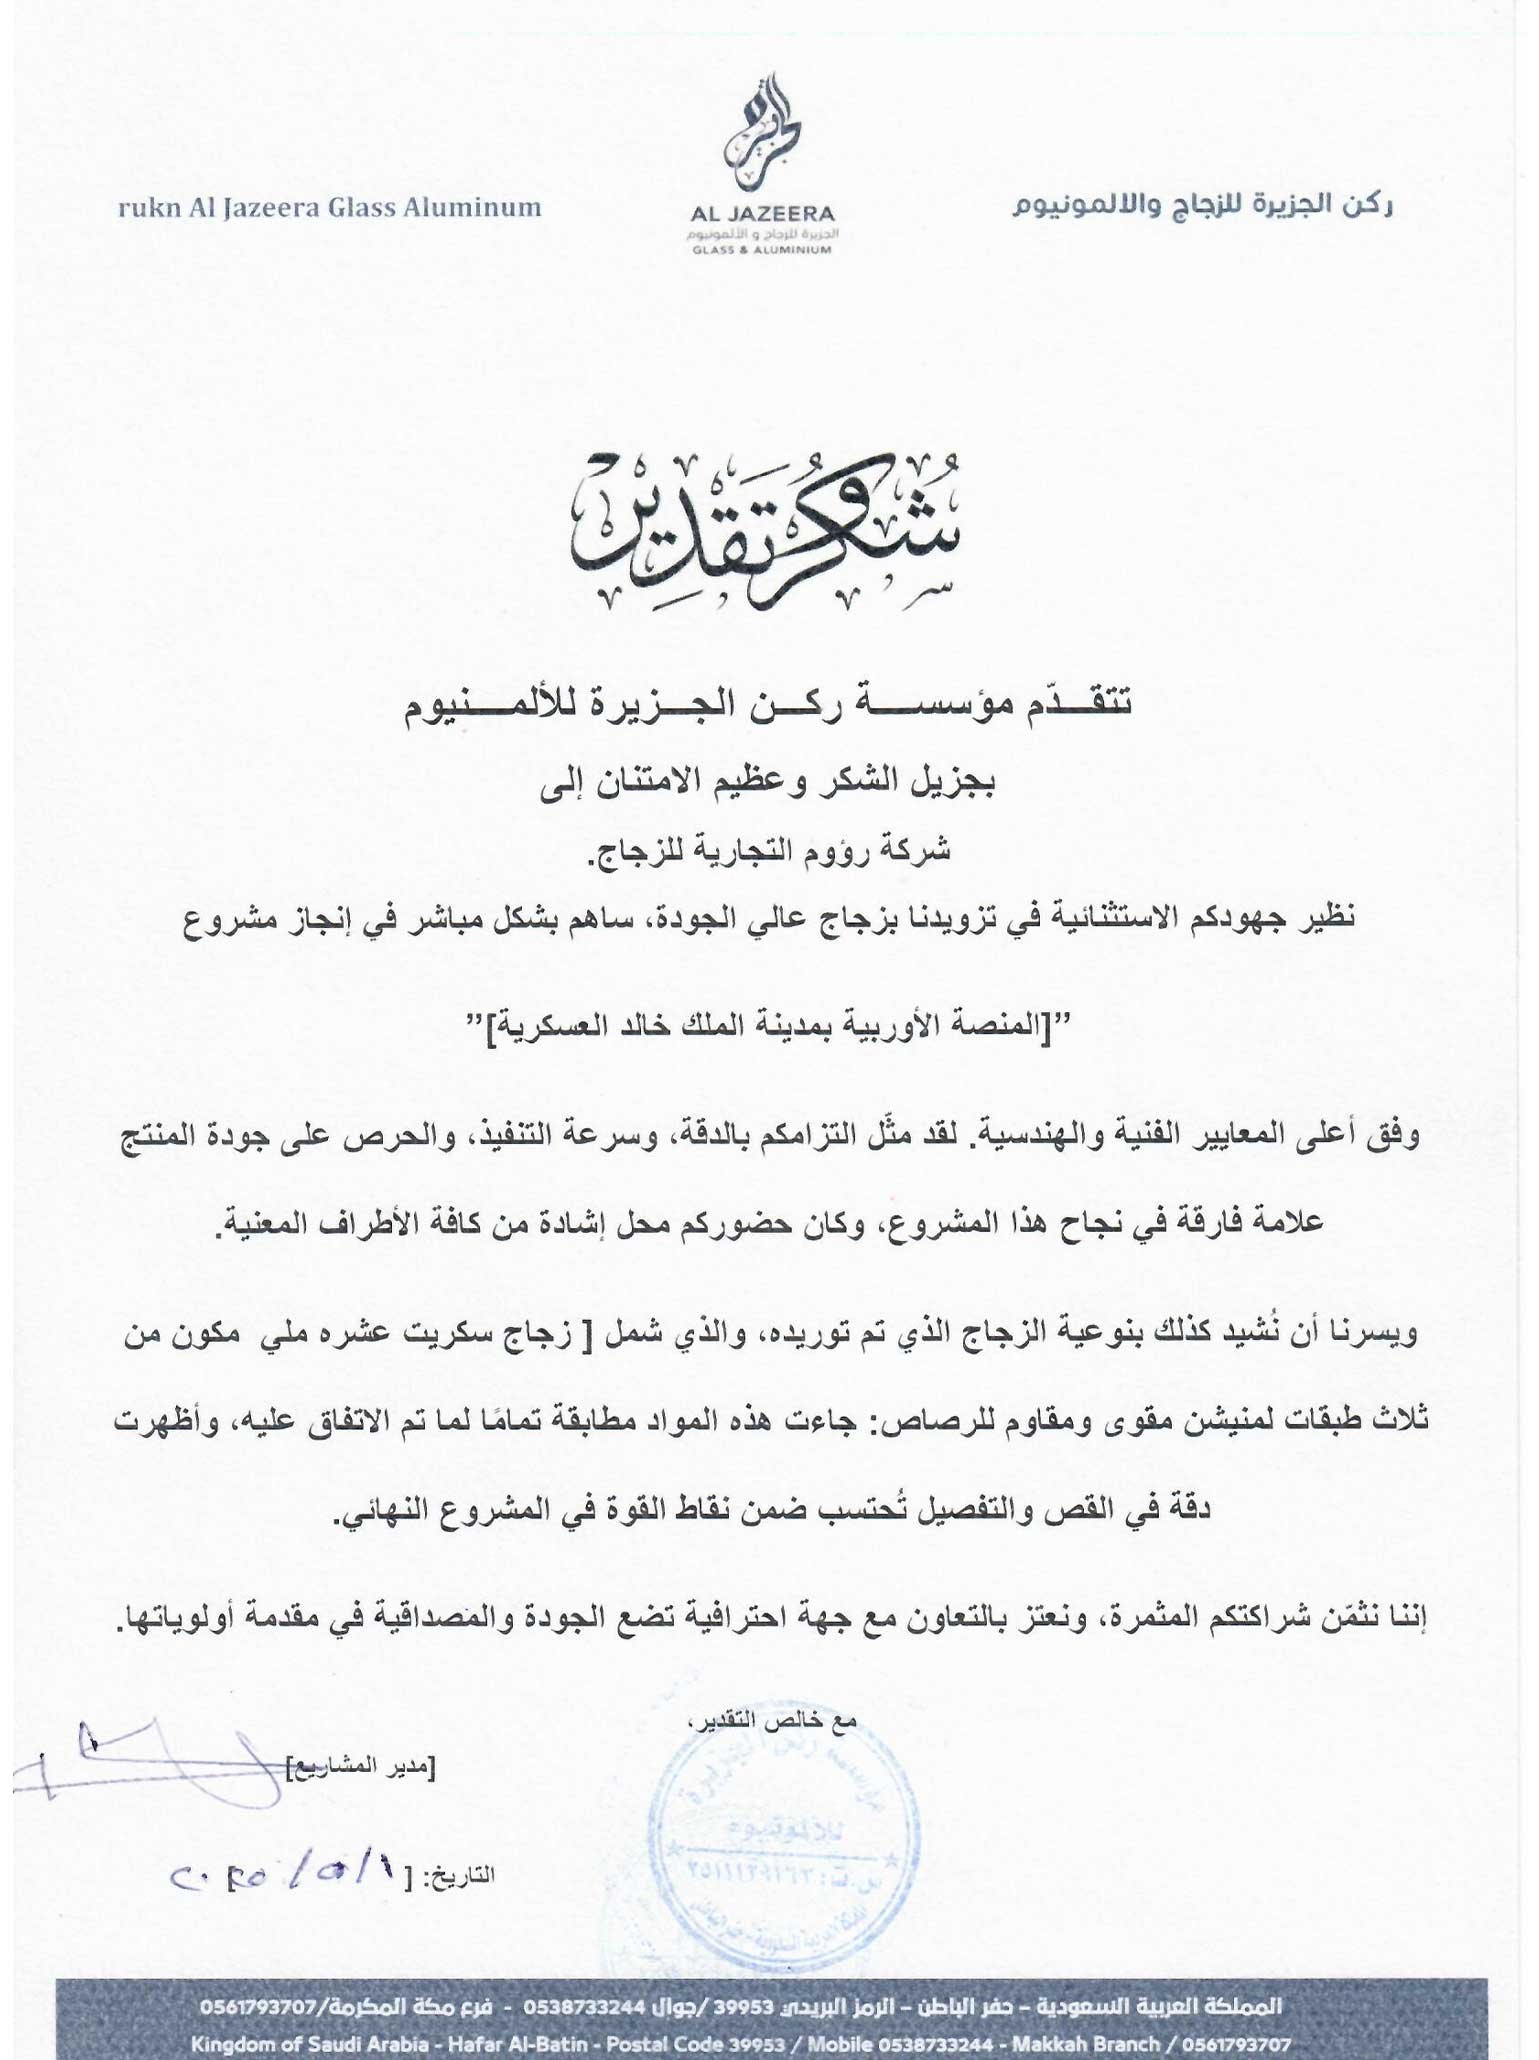 rukn Al Jazeera Glass Aluminum
الجزيرة
AL JAZEERA
الجزيرة للزجاج و الألمونيوم
GLASS & ALUMINIUM
ركن الجزيرة للزجاج والالمونيوم
شُكر وتقدير
تتقدّم مؤسسة ركن الجزيرة للألمنيوم
بجزيل الشكر وعظيم الامتنان إلى
شركة رؤوم التجارية للزجاج.
نظير جهودكم الاستثنائية في تزويدنا بزجاج عالي الجودة، ساهم بشكل مباشر في إنجاز مشروع
”[المنصة الأوربية بمدينة الملك خالد العسكرية]”
وفق أعلى المعايير الفنية والهندسية. لقد مثّل التزامكم بالدقة، وسرعة التنفيذ، والحرص على جودة المنتج
علامة فارقة في نجاح هذا المشروع، وكان حضوركم محل إشادة من كافة الأطراف المعنية.
ويسرنا أن نُشيد كذلك بنوعية الزجاج الذي تم توريده، والذي شمل [ زجاج سكريت عشره ملي مكون من
ثلاث طبقات لمنيشن مقوى ومقاوم للرصاص: جاءت هذه المواد مطابقة تمامًا لما تم الاتفاق عليه، وأظهرت
دقة في القص والتفصيل تُحتسب ضمن نقاط القوة في المشروع النهائي.
إننا نثمّن شراكتكم المثمرة، ونعتز بالتعاون مع جهة احترافية تضع الجودة والمصداقية في مقدمة أولوياتها.
مع خالص التقدير،
[مدير المشاريع]
مؤسسة ركن الجزيرة
للالمونيوم
التاريخ: [ ١/٥/٢٠٢٥
المملكة العربية السعودية – حفر الباطن – الرمز البريدي 39953 /جوال 0538733244 - فرع مكة المكرمة/0561793707
Kingdom of Saudi Arabia - Hafar Al-Batin - Postal Code 39953 / Mobile 0538733244 - Makkah Branch / 0561793707